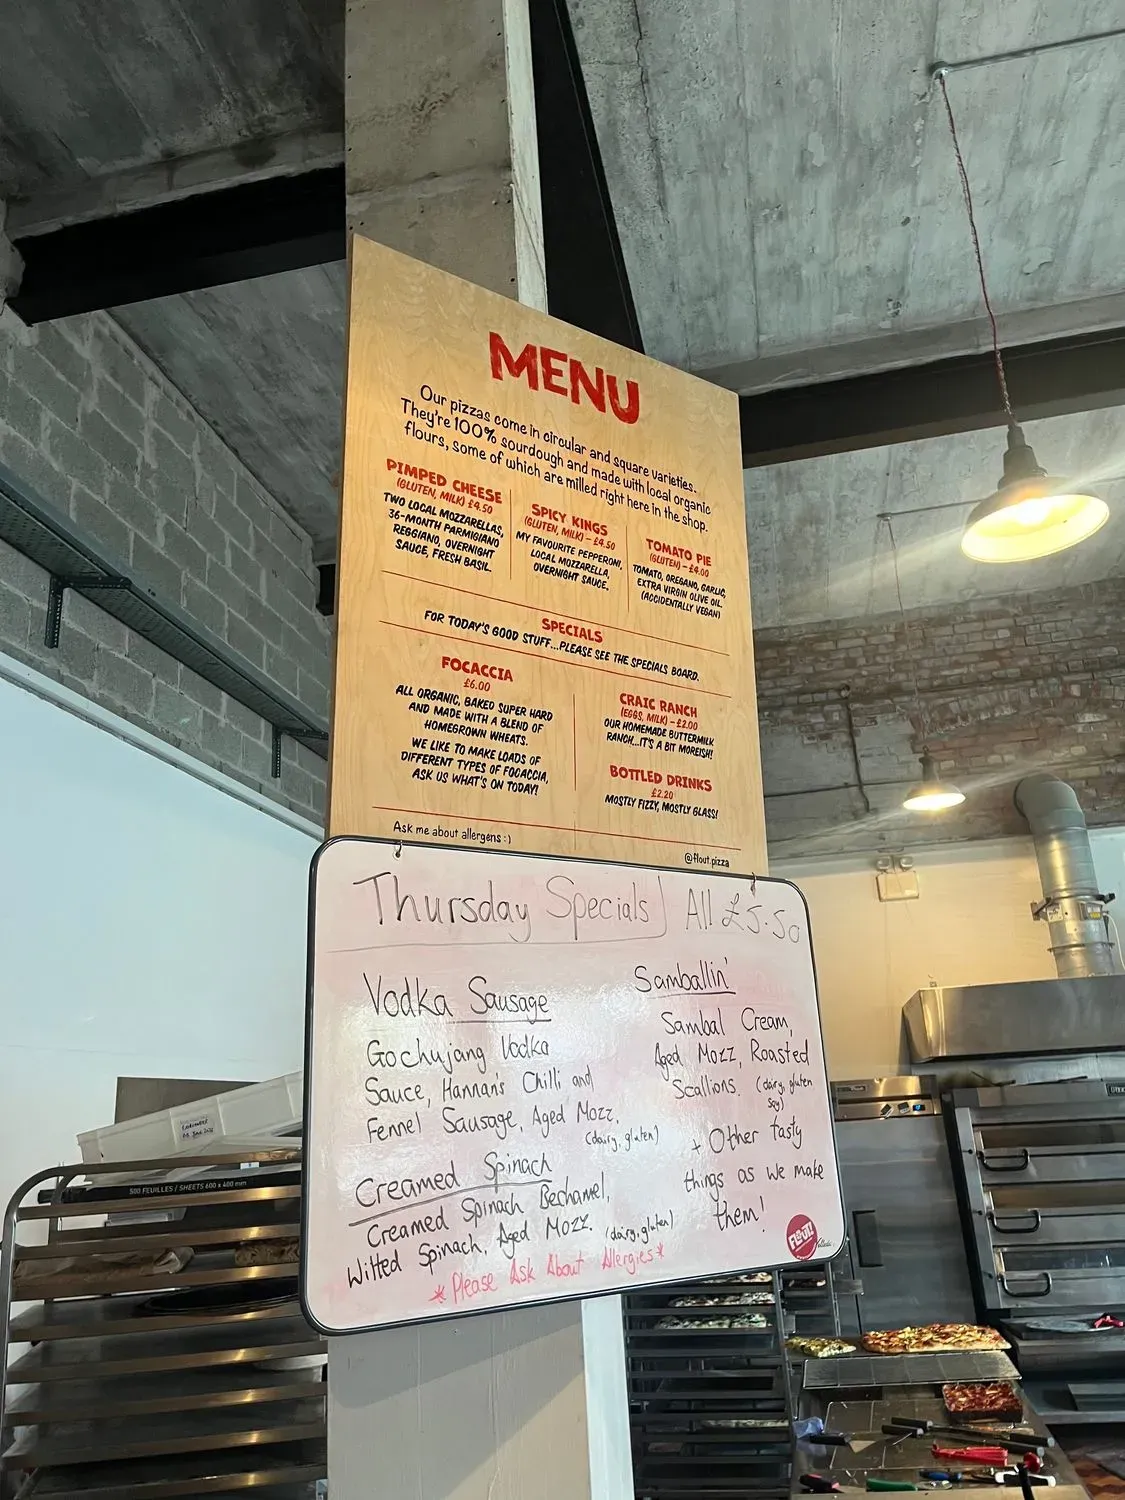 MENU
Our pizzas come in circular and square varieties.
They're 100% sourdough and made with local organic
flours, some of which are milled right here in the shop.
PIMPED CHEESE
(GLUTEN, MILK) £4.50
TWO LOCAL MOZZARELLAS,
36-MONTH PARMIGIANO
REGGIANO, OVERNIGHT
SAUCE, FRESH BASIL.
SPICY KINGS
(GLUTEN, MILK) – £4.50
MY FAVOURITE PEPPERONI,
LOCAL MOZZARELLA,
OVERNIGHT SAUCE.
TOMATO PIE
(GLUTEN) – £4.00
TOMATO, OREGANO, GARLIC,
EXTRA VIRGIN OLIVE OIL.
(ACCIDENTALLY VEGAN)
SPECIALS
FOR TODAY'S GOOD STUFF...PLEASE SEE THE SPECIALS BOARD.
FOCACCIA
£6.00
ALL ORGANIC, BAKED SUPER HARD
AND MADE WITH A BLEND OF
HOMEGROWN WHEATS.
WE LIKE TO MAKE LOADS OF
DIFFERENT TYPES OF FOCACCIA,
ASK US WHAT'S ON TODAY!
CRAIC RANCH
(EGGS, MILK) – £2.00
OUR HOMEMADE BUTTERMILK
RANCH...IT'S A BIT MOREISH!
BOTTLED DRINKS
£2.20
MOSTLY FIZZY, MOSTLY GLASS!
Ask me about allergens :)
@flout.pizza
Thursday Specials All £5.50
Vodka Sausage
Gochujang Vodka
Sauce, Hannan's Chilli and
Fennel Sausage, Aged Mozz,
(dairy, gluten)
Creamed Spinach
Creamed Spinach Bechamel,
Wilted Spinach, Aged Mozz. (dairy, gluten)
*Please Ask About Allergies*
Samballin'
Sambal Cream,
Aged Mozz, Roasted
Scallions. (dairy, gluten
soy)
+ Other tasty
things as we make
them!
FLOUT!
500 FEUILLES / SHEETS 600 x 400 mm